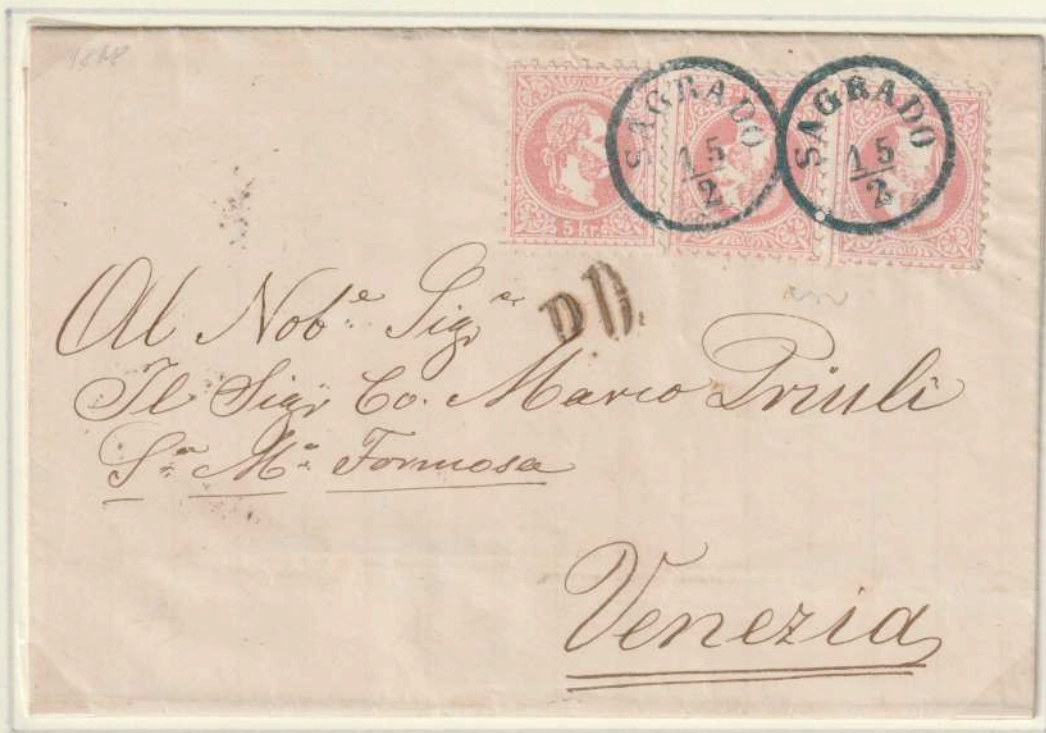 1868
SAGRADO
15/2
SAGRADO
15/2
5 kr.
P.D.
Al Nob.e Sigr
Il Sigr Co. Marco Priuli
S.a M.a Formosa
Venezia